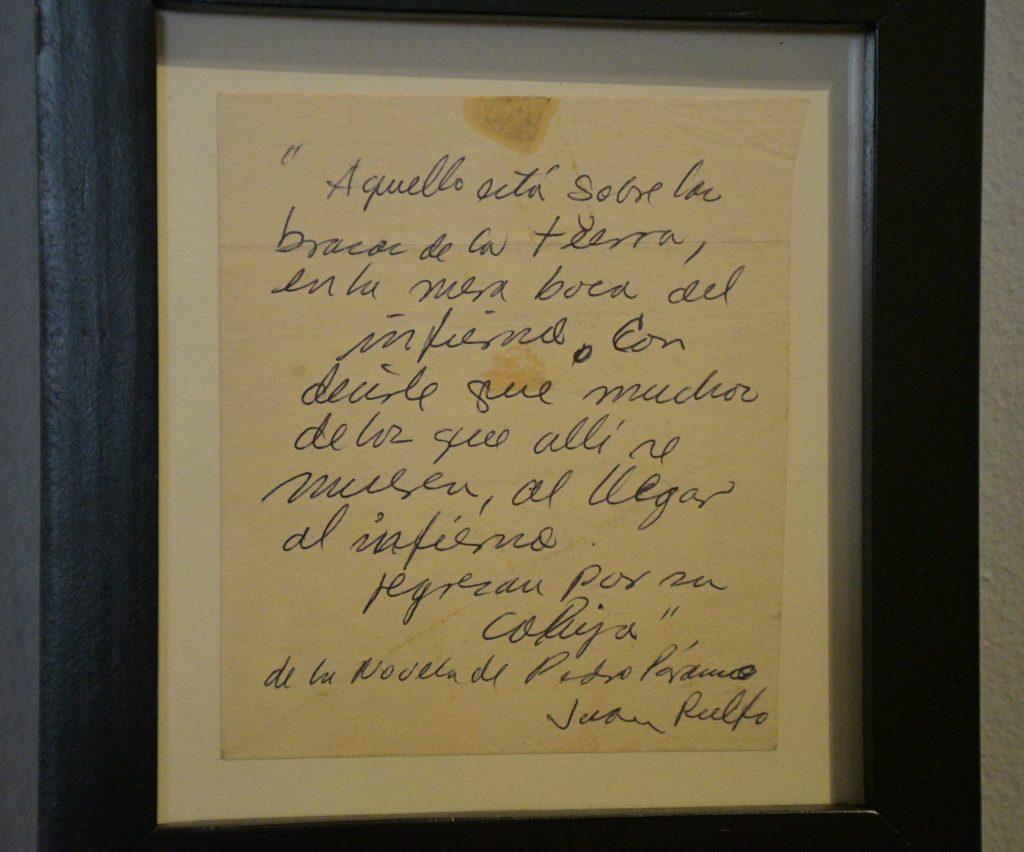 " Aquello está sobre las
brasas de la tierra,
en la mera boca del
infierno. Con
decirle que muchos
de los que allí se
mueren, al llegar
al infierno.
regresan por su
cobija",
de la Novela de Pedro Páramo
Juan Rulfo